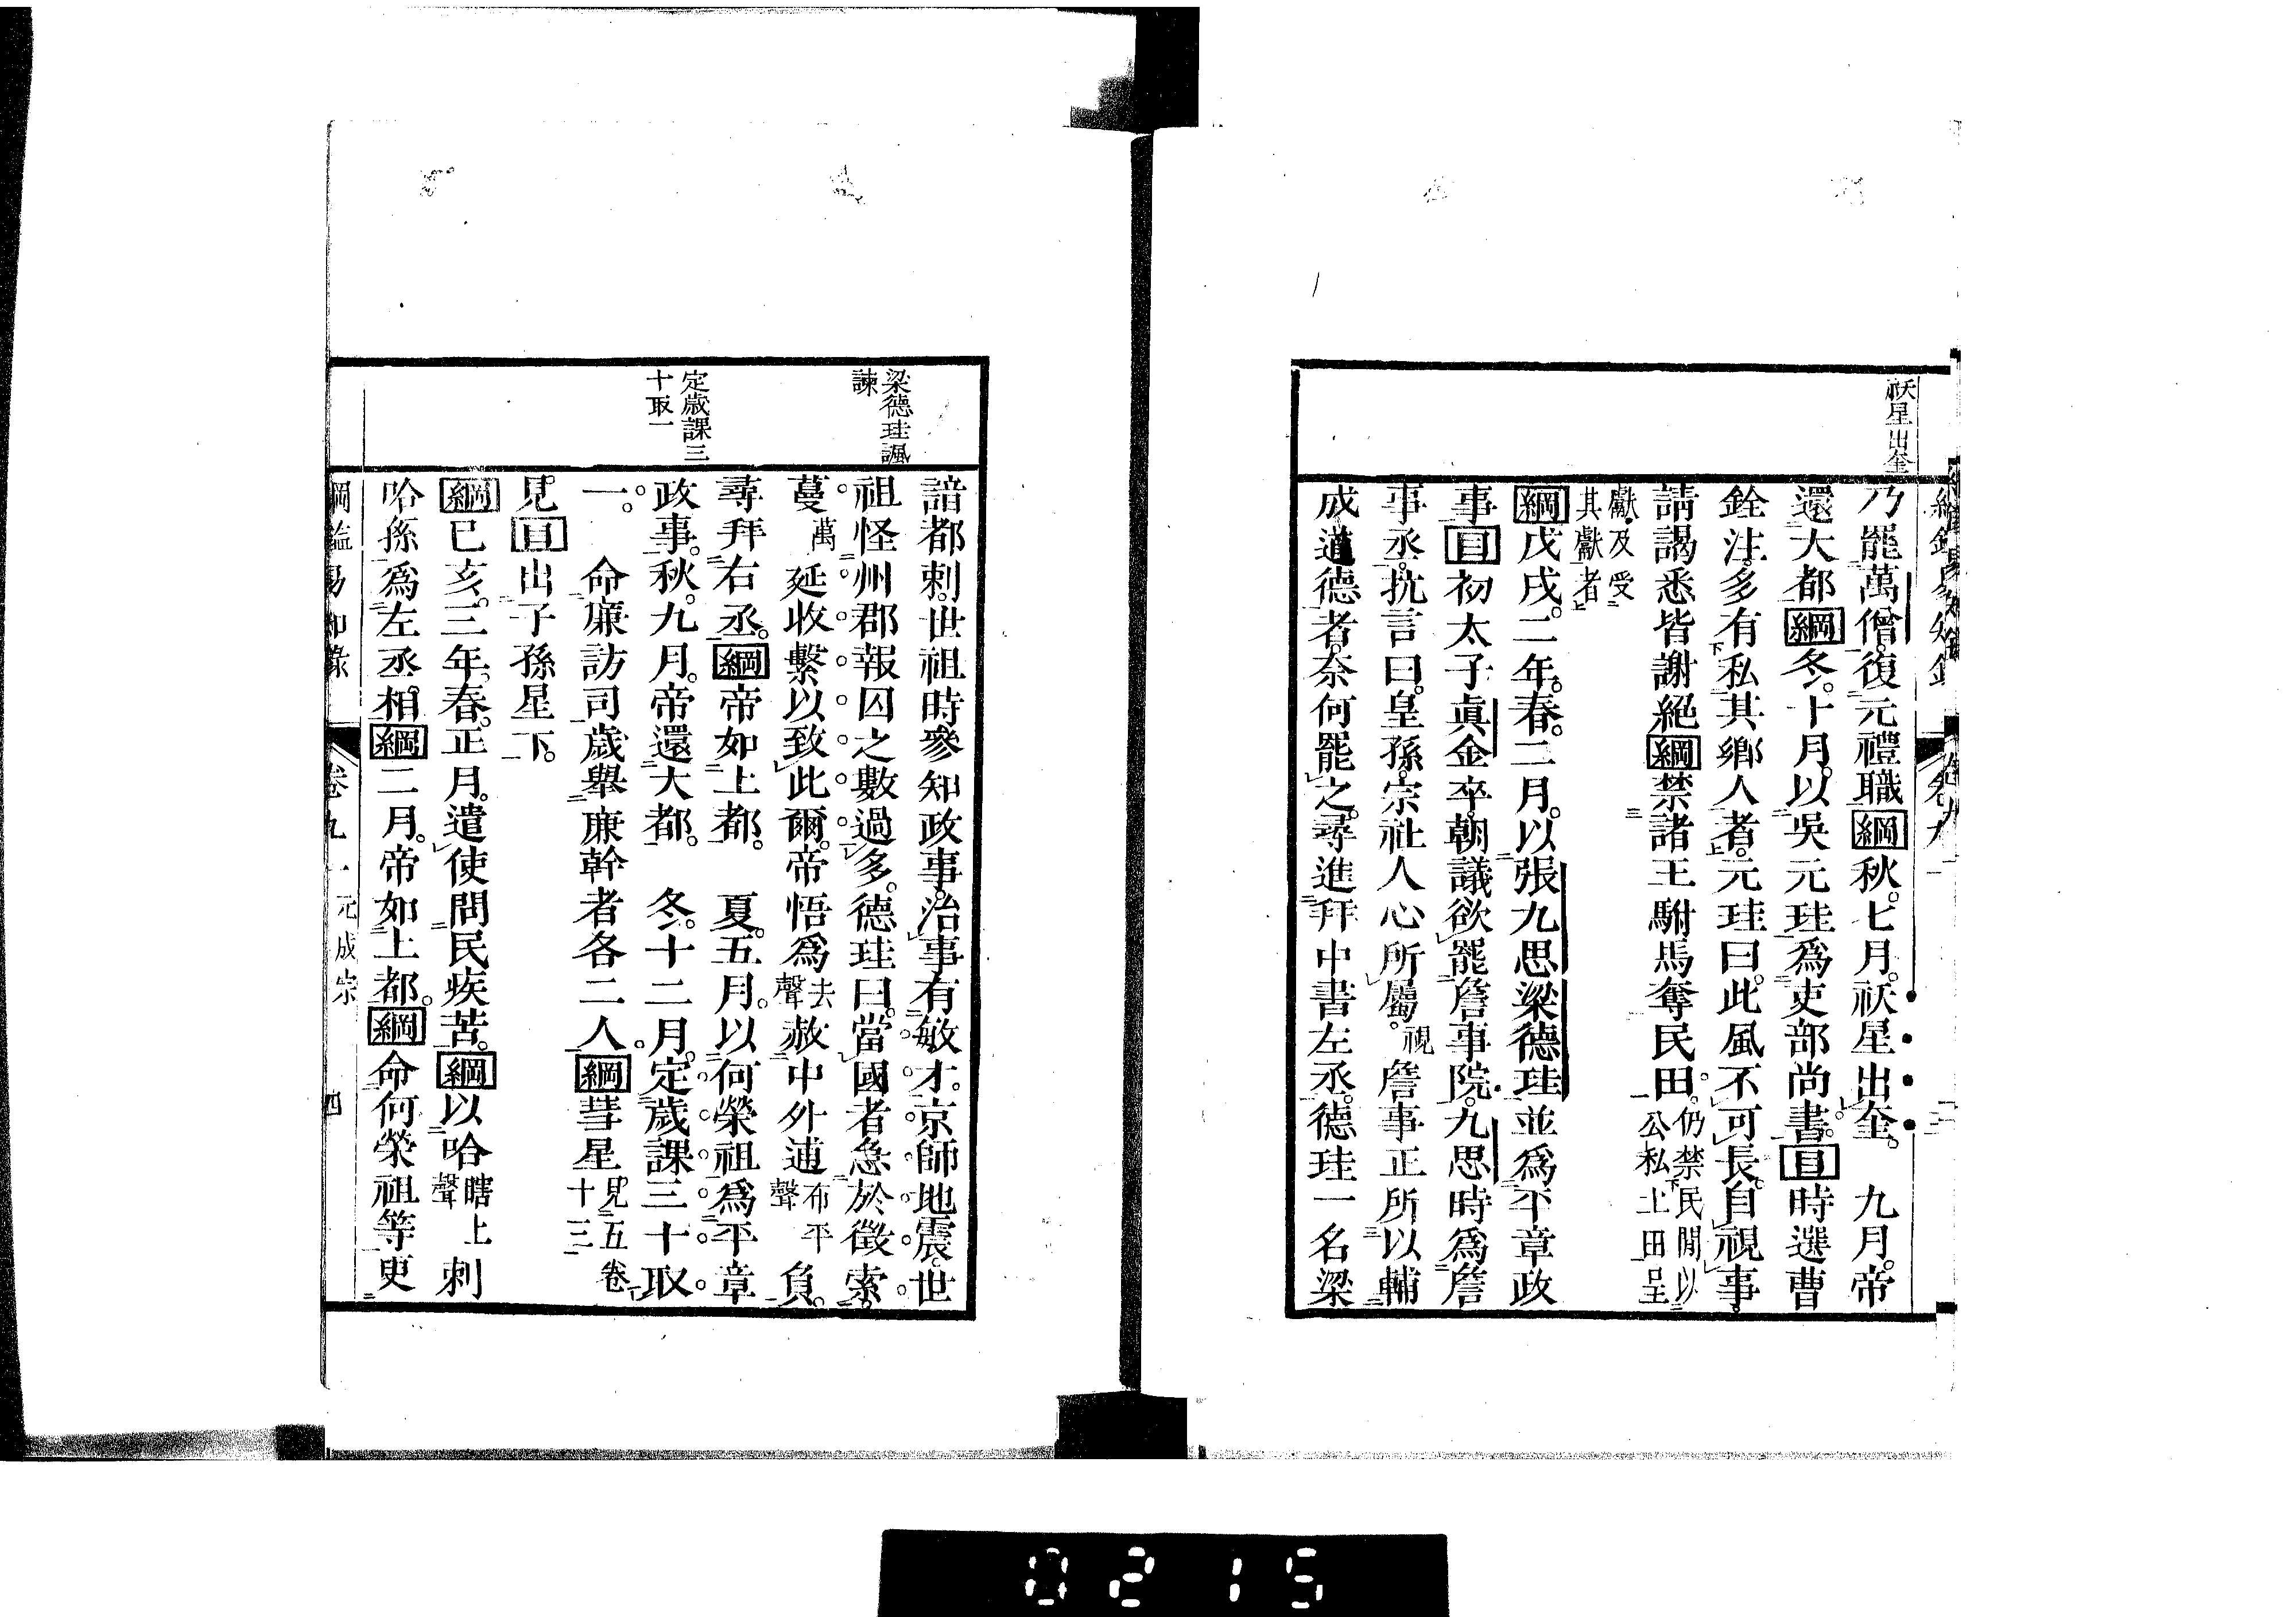 祅星出奎
乃罷萬僧。復元禮職綱秋。七月。祅星出奎。　九月。帝
還大都綱冬。十月。以吳元珪爲吏部尚書。目時選曹
銓注。多有私其鄉人者。元珪曰。此風不可長。自視事。
請謁悉皆謝絕綱禁諸王駙馬奪民田。仍禁民間以公私土田呈
獻。及受其獻者
綱戊戌。二年。春。二月。以張九思梁德珪並爲平章政
事目初太子眞金卒。朝議欲罷詹事院。九思時爲詹
事丞。抗言曰。皇孫。宗社人心所屬。視詹事正所以輔
成道德者。奈何罷之。尋進拜中書左丞。德珪一名梁
梁德珪諷諫
定歲課三十取一
諳都剌。世祖時參知政事。治事有敏才。京師地震。世
祖怪州郡報囚之數過多。德珪曰。當國者急於徵索。
蔓萬延收繫以致此爾。帝悟爲去聲赦中外逋布平聲負。
尋拜右丞。綱帝如上都。　夏。五月。以何榮祖爲平章
政事。秋。九月。帝還大都。　冬。十二月。定歲課三十取
一。　命廉訪司歲舉廉幹者各二人。綱彗星見五卷十三
見。目出子孫星下。
綱己亥。三年。春。正月。遣使問民疾苦。綱以哈瞎上聲剌
哈孫爲左丞相。綱二月。帝如上都。綱命何榮祖等更
綱鑑易知錄　卷九一　元成宗　四